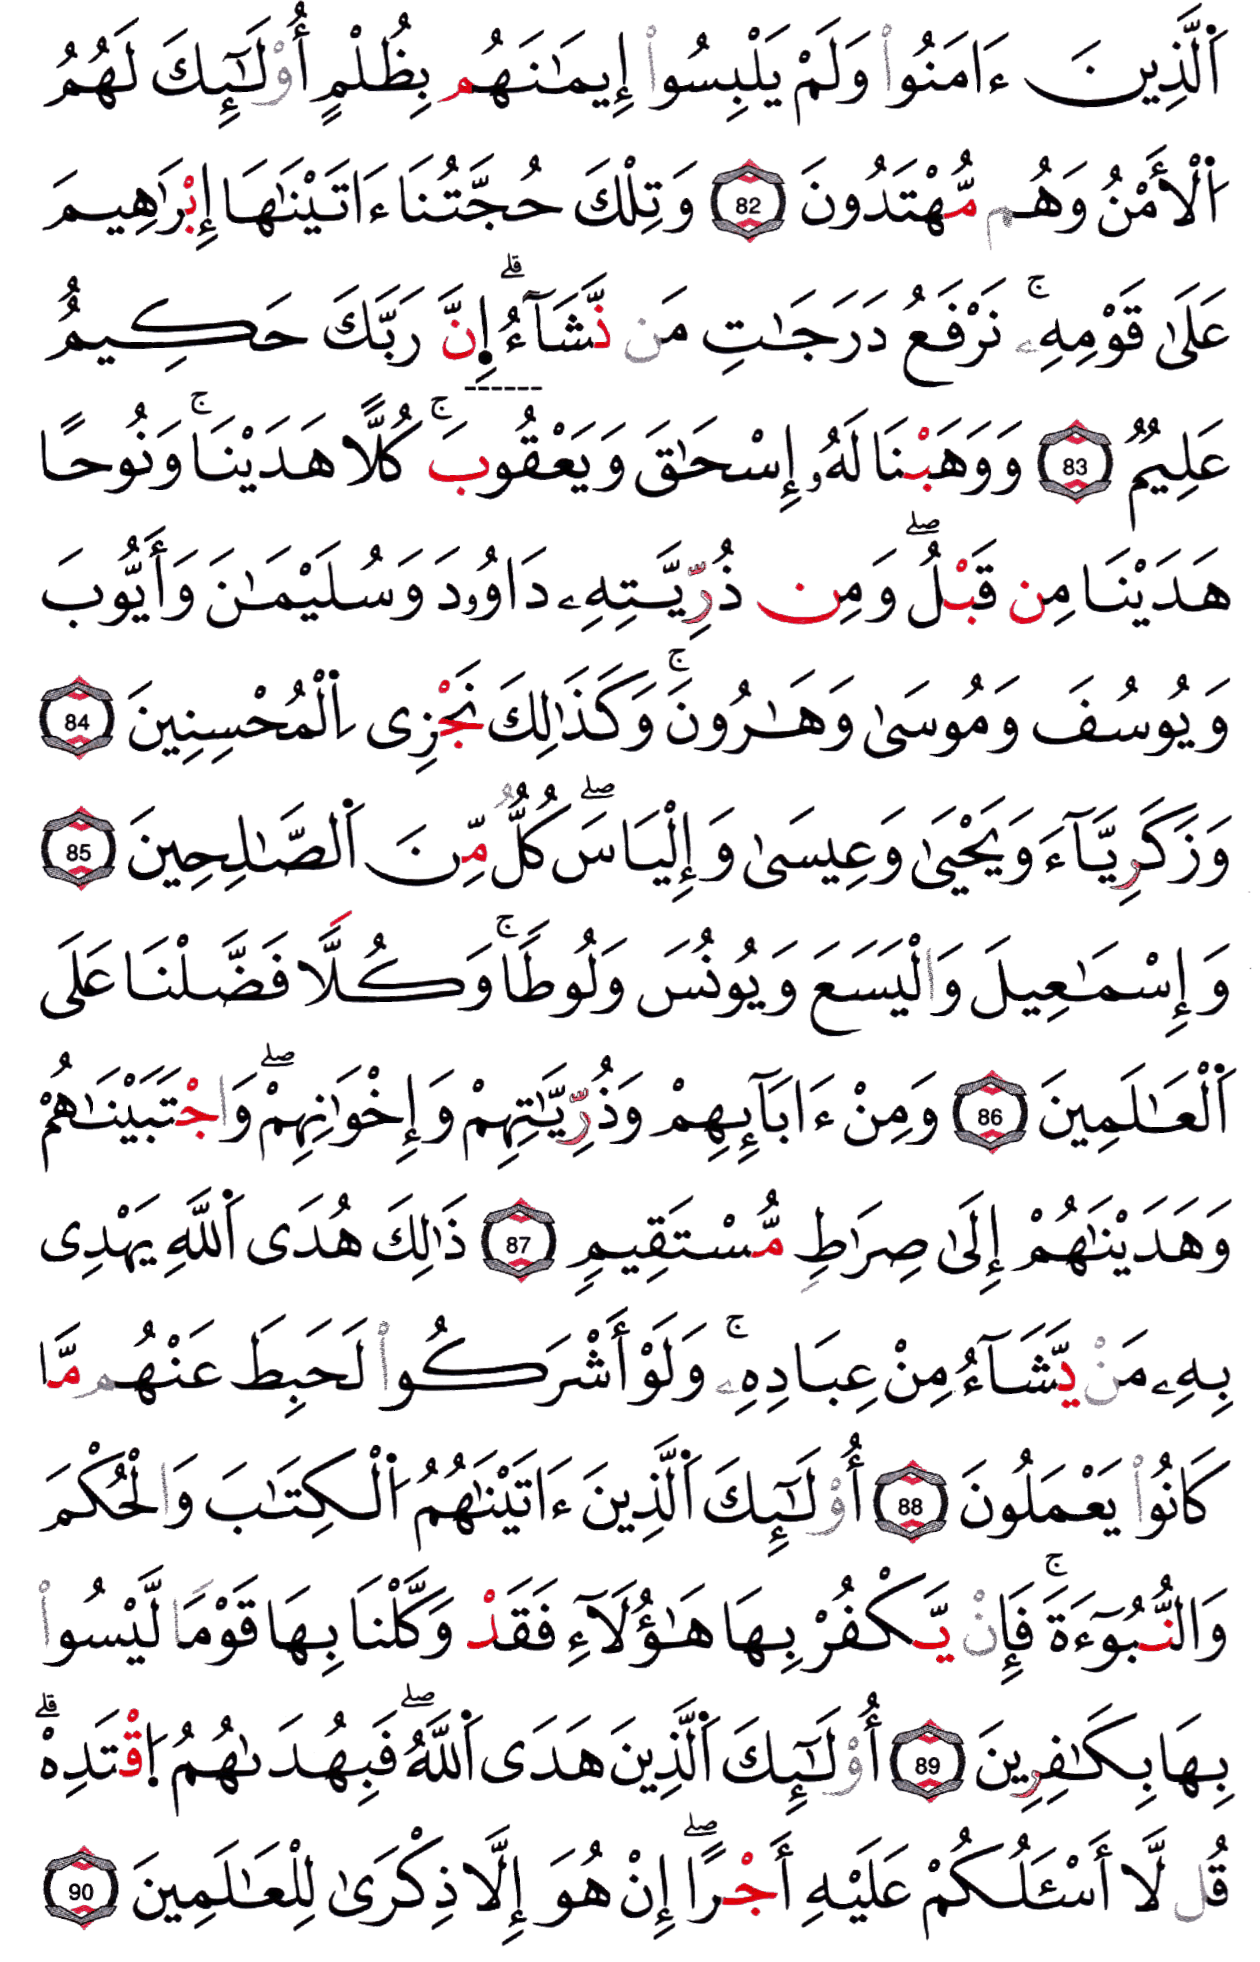 اَ۬لَّذِينَ ءَامَنُواْ وَلَمْ يَلْبِسُواْ إِيمَٰنَهُم بِظُلْمٍ أُوْلَٰٓئِكَ لَهُمُ
اُ۬لْأَمْنُ وَهُم مُّهْتَدُونَ 82 وَتِلْكَ حُجَّتُنَا ءَاتَيْنَٰهَا إِبْرَٰهِيمَ
عَلَىٰ قَوْمِهِۦۚ نَرْفَعُ دَرَجَٰتِ مَن نَّشَآءُۗ اِ۪نَّ رَبَّكَ حَكِيمٌ
عَلِيمٌ 83 وَوَهَبْنَا لَهُۥ إِسْحَٰقَ وَيَعْقُوبَۚ كُلًّا هَدَيْنَاۚ وَنُوحًا
هَدَيْنَا مِن قَبْلُۖ وَمِن ذُرِّيَّتِهِۦ دَاوُۥدَ وَسُلَيْمَٰنَ وَأَيُّوبَ
وَيُوسُفَ وَمُوسَىٰ وَهَٰرُونَۚ وَكَذَٰلِكَ نَجْزِى اِ۬لْمُحْسِنِينَ 84
وَزَكَرِيَّآءَ وَيَحْيَىٰ وَعِيسَىٰ وَإِلْيَاسَۖ كُلٌّ مِّنَ اَ۬لصَّٰلِحِينَ 85
وَإِسْمَٰعِيلَ وَالْيَسَعَ وَيُونُسَ وَلُوطًاۚ وَكُلًّا فَضَّلْنَا عَلَى
اَ۬لْعَٰلَمِينَ 86 وَمِنْ ءَابَآئِهِمْ وَذُرِّيَّٰتِهِمْ وَإِخْوَٰنِهِمْۖ وَاجْتَبَيْنَٰهُمْ
وَهَدَيْنَٰهُمْ إِلَىٰ صِرَٰطٍ مُّسْتَقِيمٍ 87 ذَٰلِكَ هُدَى اَ۬للَّهِ يَهْدِى
بِهِۦ مَنْ يَّشَآءُ مِنْ عِبَادِهِۦۚ وَلَوْ أَشْرَكُواْ لَحَبِطَ عَنْهُم مَّا
كَانُواْ يَعْمَلُونَ 88 أُوْلَٰٓئِكَ اَ۬لَّذِينَ ءَاتَيْنَٰهُمُ اُ۬لْكِتَٰبَ وَالْحُكْمَ
وَالنُّبُوٓءَةَۚ فَإِنْ يَّكْفُرْ بِهَا هَٰٓؤُلَآءِ فَقَدْ وَكَّلْنَا بِهَا قَوْمًا لَّيْسُواْ
بِهَا بِكَٰفِرِينَ 89 أُوْلَٰٓئِكَ اَ۬لَّذِينَ هَدَى اَ۬للَّهُۖ فَبِهُدَىٰهُمُ اُ۪قْتَدِهْۗ
قُل لَّا أَسْـَٔلُكُمْ عَلَيْهِ أَجْرًاۖ إِنْ هُوَ إِلَّا ذِكْرَىٰ لِلْعَٰلَمِينَ 90